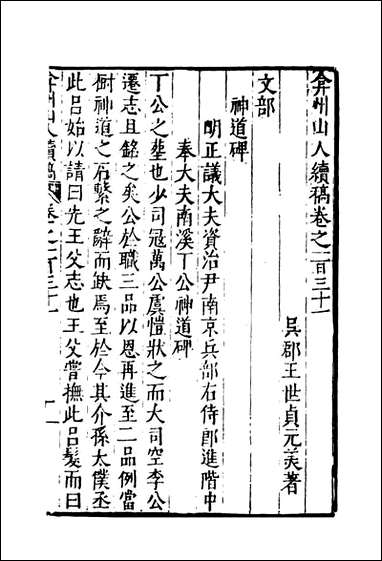 弇州山人續稿卷之一百三十一
吳郡王世貞元美著
文部
神道碑
明正議大夫資治尹南京兵部右侍郎進階中
奉大夫南溪丁公神道碑
丁公之塟也少司寇萬公虞愷狀之而大司空李公
遷志且銘之矣公於職三品以恩再進至二品例當
樹神道之石繫之辭而缺焉至於今其介孫太僕丞
此呂始以請曰先王父志也王父嘗撫此呂髮而曰
弇州山人續稿 卷之一百三十一 一